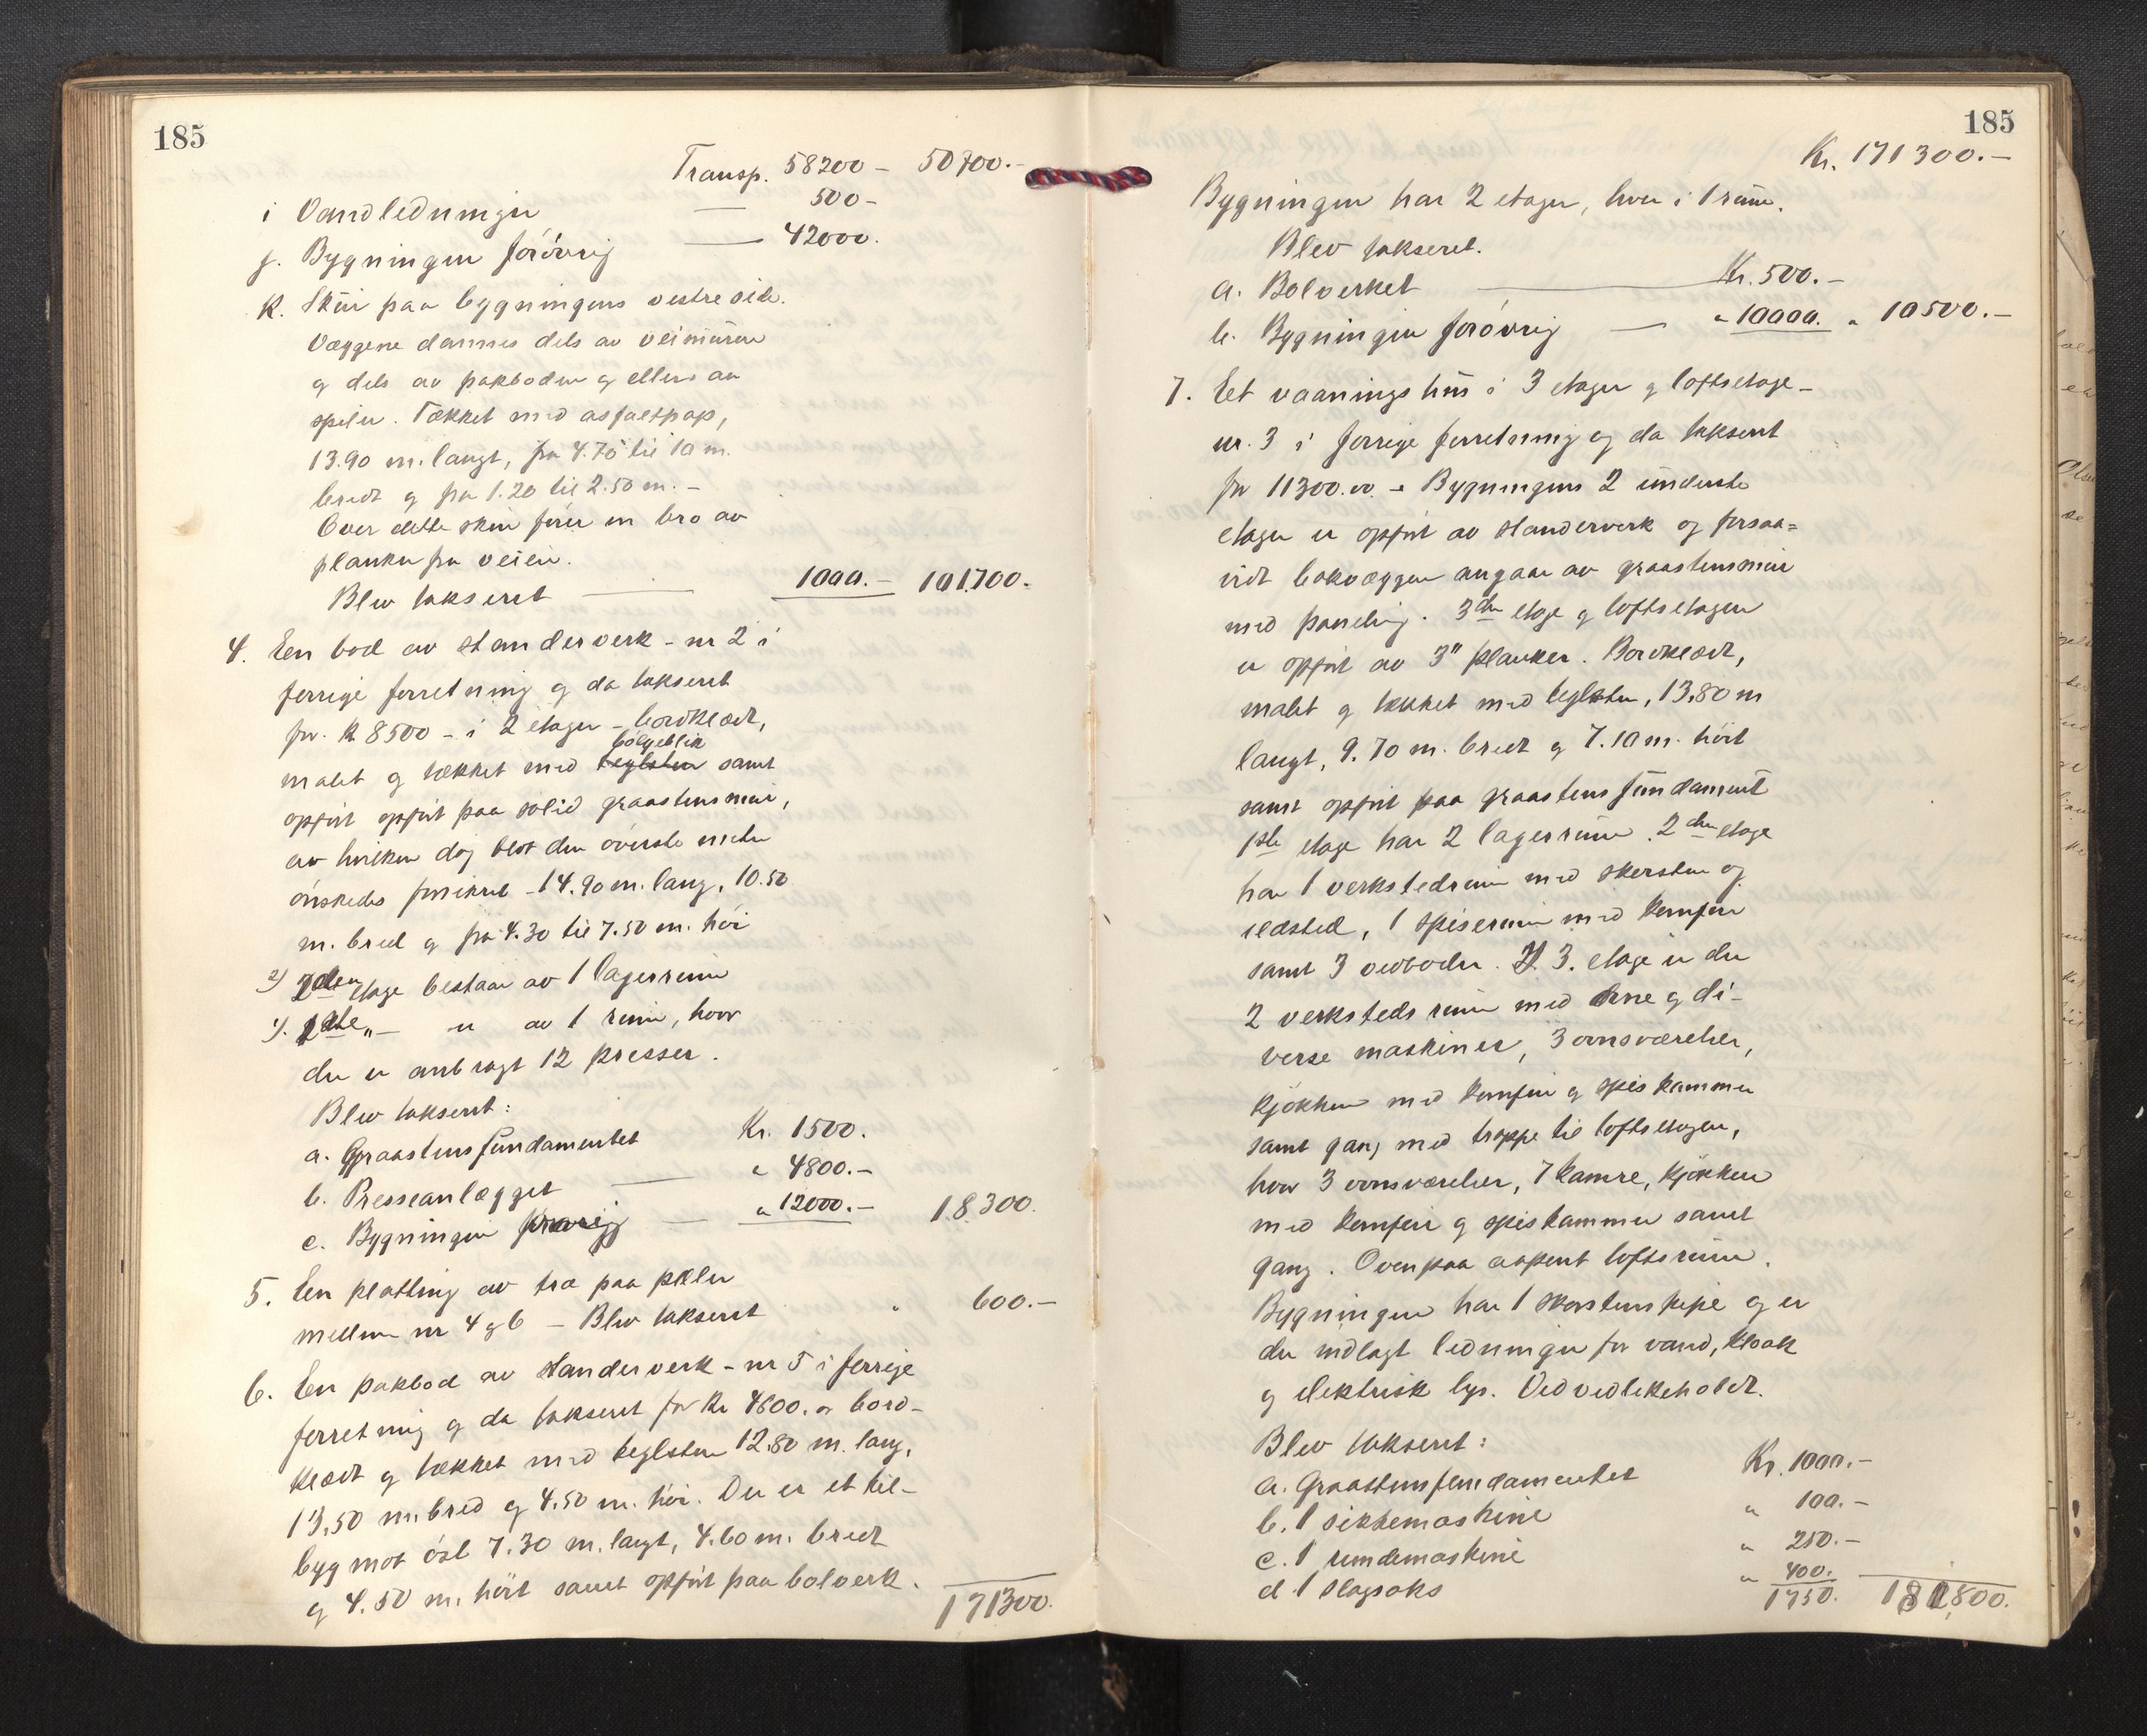 185
Transp. 58200 – 50700.–
i Vandledningen — 500 –
j. Bygningen forövrig — 42000.
k. Skur paa bygningens vestre side.
Væggene dannes dels av veimuren
og dels av pakboden og ellers av
spiler. Tækket med asfaltpap,
13.90 m. langt, fra 4.75 til 10 m.
bredt og fra 1.20 til 2.50 m. –
Over dette skur fører en bro av
planker fra veien.
Blev takseret — 1000.– 101700.
4. En bod av standerverk – nr 2 i
forrige forretning og da takseret
for k 8500 – i 2 etager – bordklædt,
bölgeblik
malet og tækket med teglsten samt
opført opført paa solid graastensmur,
av hvilken dog blot den øverste meter
ønskedes forsikret – 14.90 m. lang, 10.50
m. bred og fra 4.30 til 7.50 m. høi
2) 2den etage bestaar av 1 lagerrum
1). 1ste „ – er av 1 rum, hvor
der er anbragt 12 presser.
Blev takseret:
a. Graastensfundamentet Kr. 1500.
b. Presseanlægget — „ 4800.–
c. Bygningen forøvrig — „ 12000.– 18300.
5. En platting av træ paa pæler
mellem nr 4 og 6 – Blev takseret „ 600.–
6. En pakbod av standerverk – nr 5 i forrige
forretning og da takseret for kr 4600.00 bord-
klædt og tækket med teglsten 12.80 m. lang,
13.50 m. bred og 4.50 m. høi. Der er et til-
byg mot øst 7.30 m. langt, 4.60 m. bredt
og 4.50 m. høit samt opført paa bolverk.
171300.
185
Kr. 171300.–
Bygningen har 2 etager, hver i 1 rum.
Blev takseret.
a. Bolverket — Kr. 500.–
b. Bygningen forøvrig — „ 10000. „ 10500.–
7. Et vaaningshus i 3 etager og loftsetage –
nr. 3 i forrige forretning og da takseret
for 11300.00 – Bygningens 2 underste
etager er opført av standerverk og forsaa=
vidt bakvæggen angaar av graastensmur
med paneling. 3die etage og loftsetagen
er opført av 3" planker. Bordklædt,
malet og tækket med teglsten, 13.80 m
langt, 9.70 m. bredt og 7.10 m. høit
samt opført paa graastens fundament
1ste etage har 2 lagerrum. 2den etage
har 1 verkstedsrum med skorsten og
ildsted, 1 spiserum med komfur
samt 3 vedboder. I 3. etage er der
2 verksteds rum med esse og di-
verse maskiner, 3 ovnsværelser,
kjøkken med komfur og spiskammer
samt gang med trappe til loftsetagen,
hvor 3 ovnsværelser, 7 kamre, kjøkken
med komfur og spiskammer samt
gang. Ovenpaa aapent loftsrum.
Bygningen har 1 skorstenspipe og er
der indlagt ledninger for vand, kloak
og elektrisk lys. Vedvedlikeholdt.
Blev takseret:
a. Graastensfundamentet Kr. 1000.–
b. 1 sikkemaskine „ 100.–
c. 1 rundemaskine „ 250.–
d 1 slagsaks „ 400.
1750. 181800.